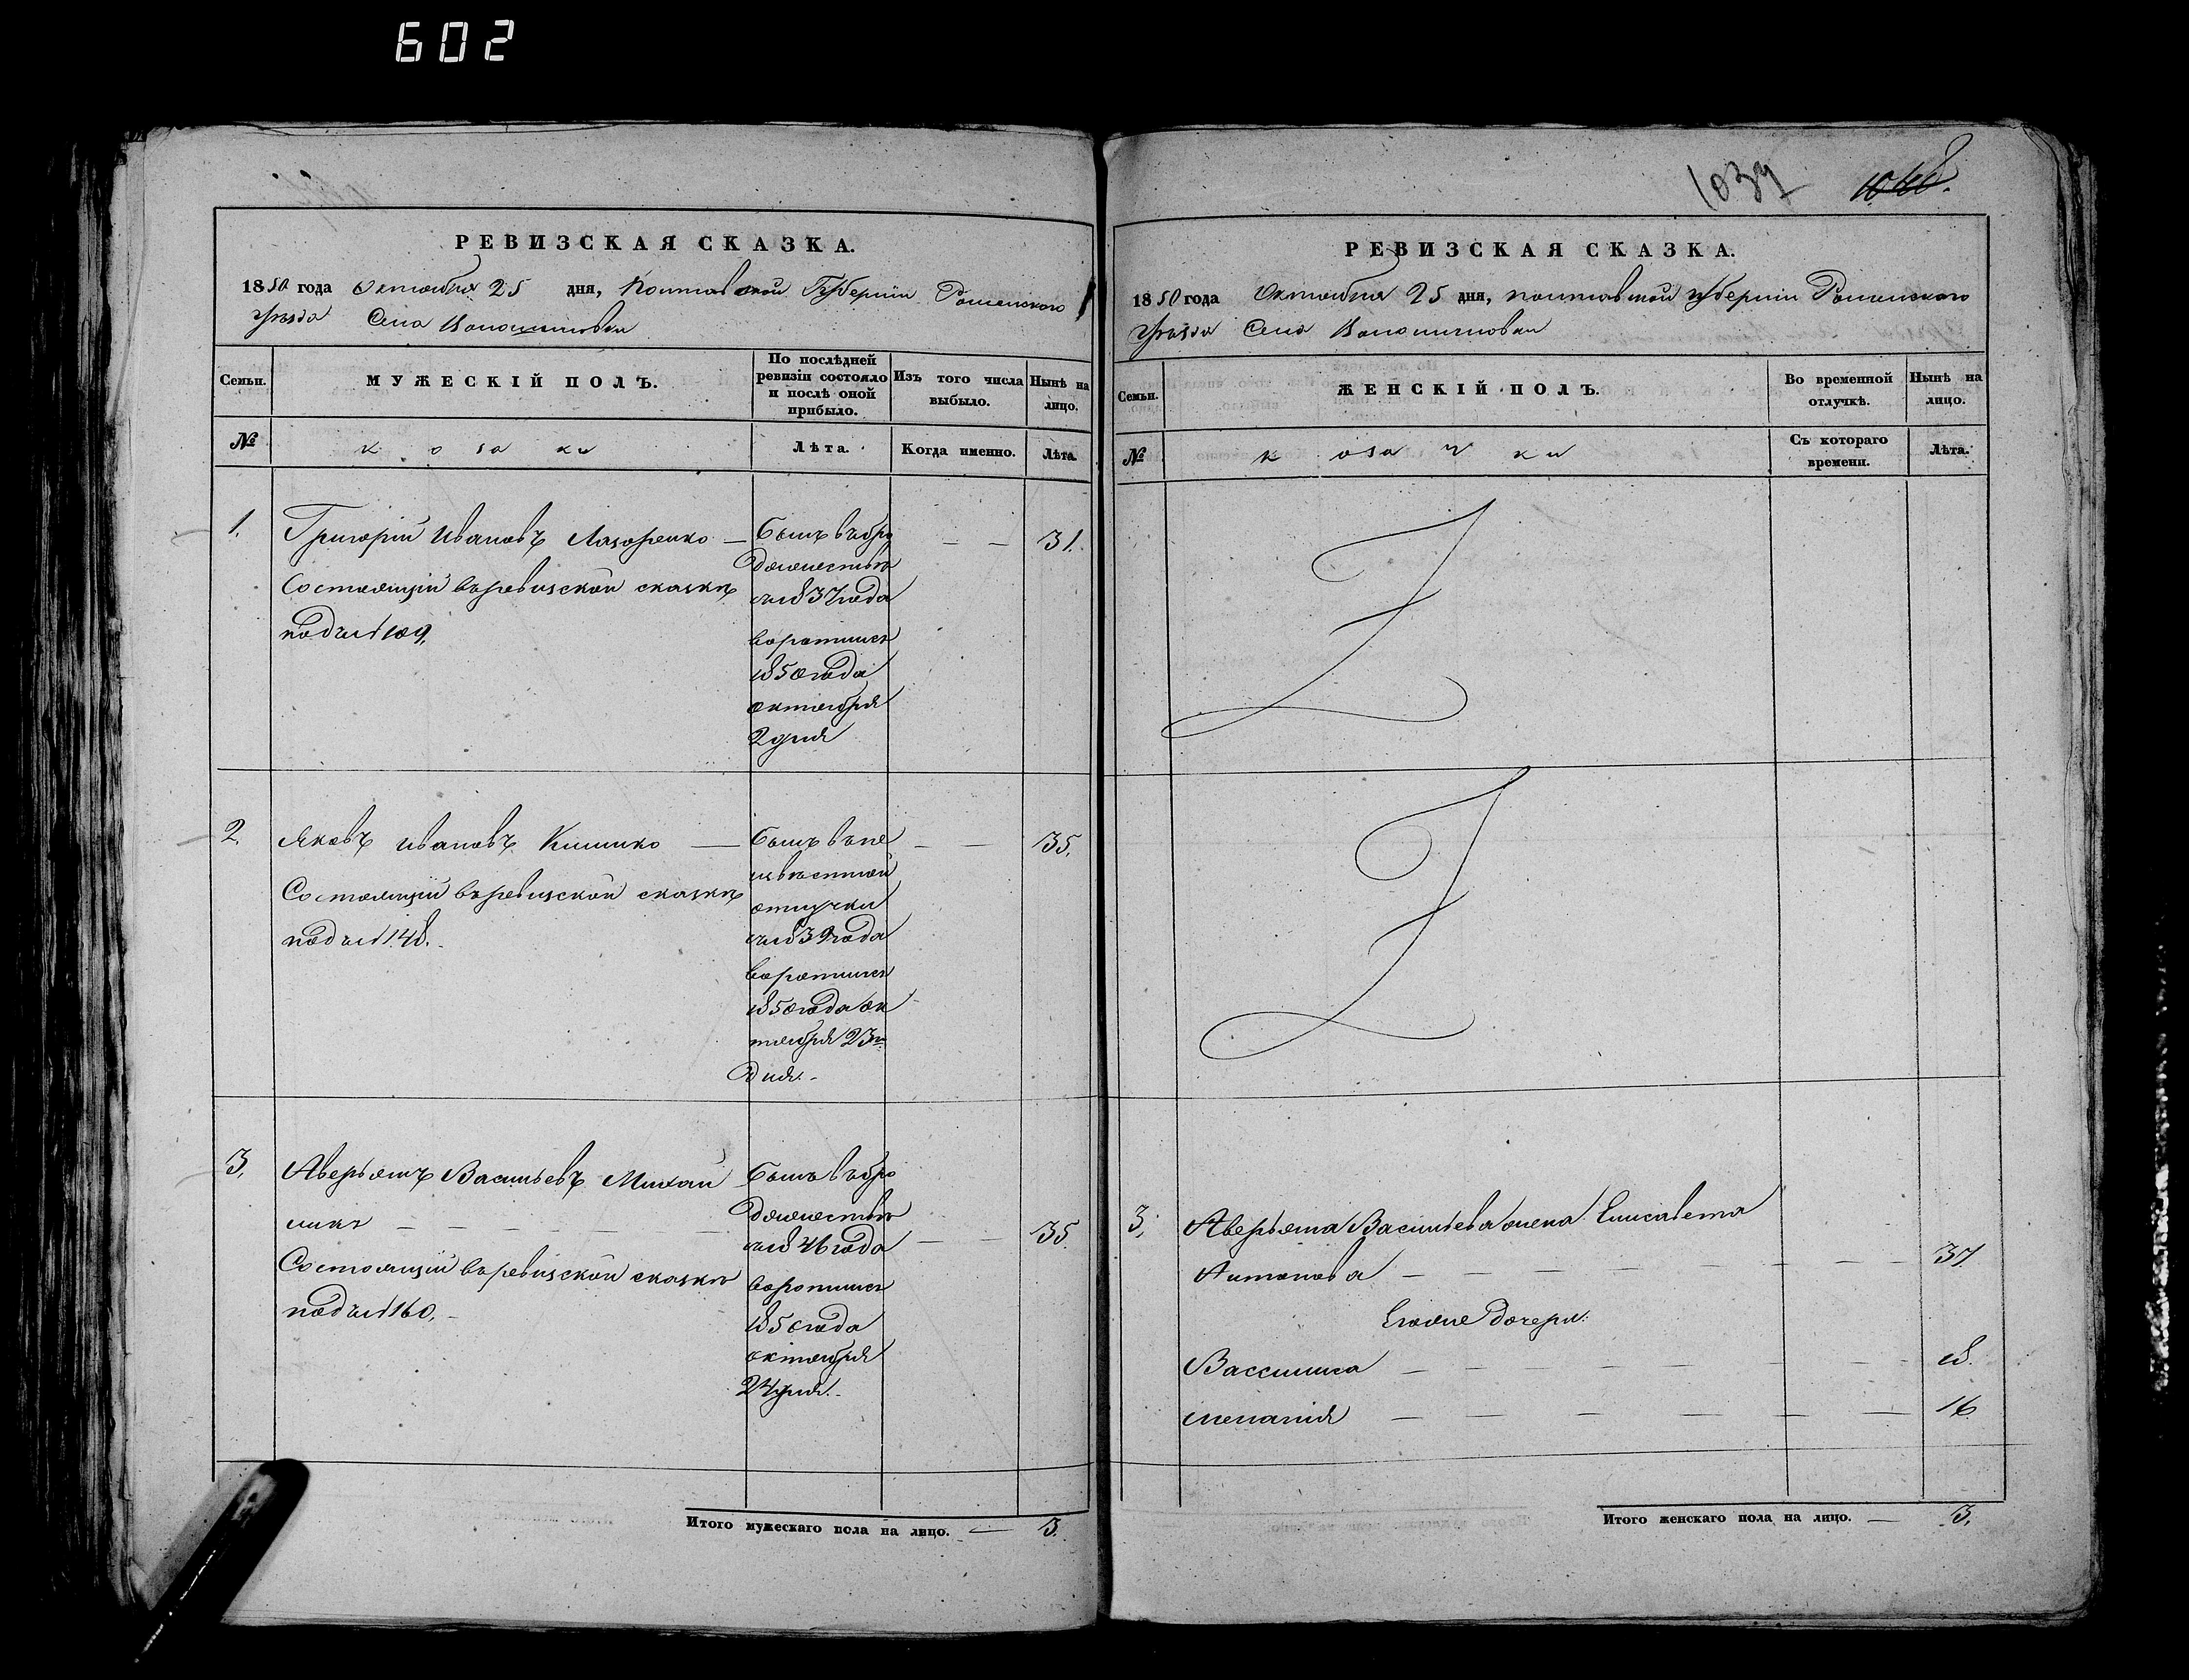 602
РЕВИЗСКАЯ СКАЗКА.
1850 года Октября 25 дня, Полтавской Губерніи Роменского
уѣзда Села Волошиновки
Семьи. МУЖЕСКІЙ ПОЛЪ. По послѣдней ревизіи состояло и послѣ оной прибыло. Изъ того числа выбыло. Нынѣ на лицо.
№ козаки Лѣта. Когда именно. Лѣта.
1. Григорій Ивановъ Лазоренко — былъ въ бро — — 31.
дяжествѣ
Состоящій въ ревизской сказкѣ съ 1837 года
под № 109.
воротился
1850 года
октября
2 дня
2. Яковъ Ивановъ — былъ в не — — 35.
извѣстной
Состоящій въ ревизской сказкѣ отлучки
под № 148. съ 1839 года
воротился
1850 года ок
тября 23го
дня.
3. Аверьянъ Васильевъ Михай былъ в бро
дяжествѣ
ликъ — — — — съ 1846 года — — 35
Состоящій въ ревизской сказкѣ воротился
под № 160. 1850 года
октября
24 дня.
Итого мужескаго пола на лицо. — 3.
1039 1040.
РЕВИЗСКАЯ СКАЗКА.
1850 года Октября 25 дня, полтавской губерніи Роменского
уѣзда Села Волошиновки
Семьи. ЖЕНСКІЙ ПОЛЪ. Во временной отлучкѣ. Нынѣ на лицо.
№ козачки Съ котораго времени. Лѣта.
3. Аверьяна Васильева жена Елисавета
Антонова — — — — — — 37
Егоже дочери:
Вассилиса — — — — — 18.
меланія — — — — — — 16
Итого женскаго пола на лицо. — 3.